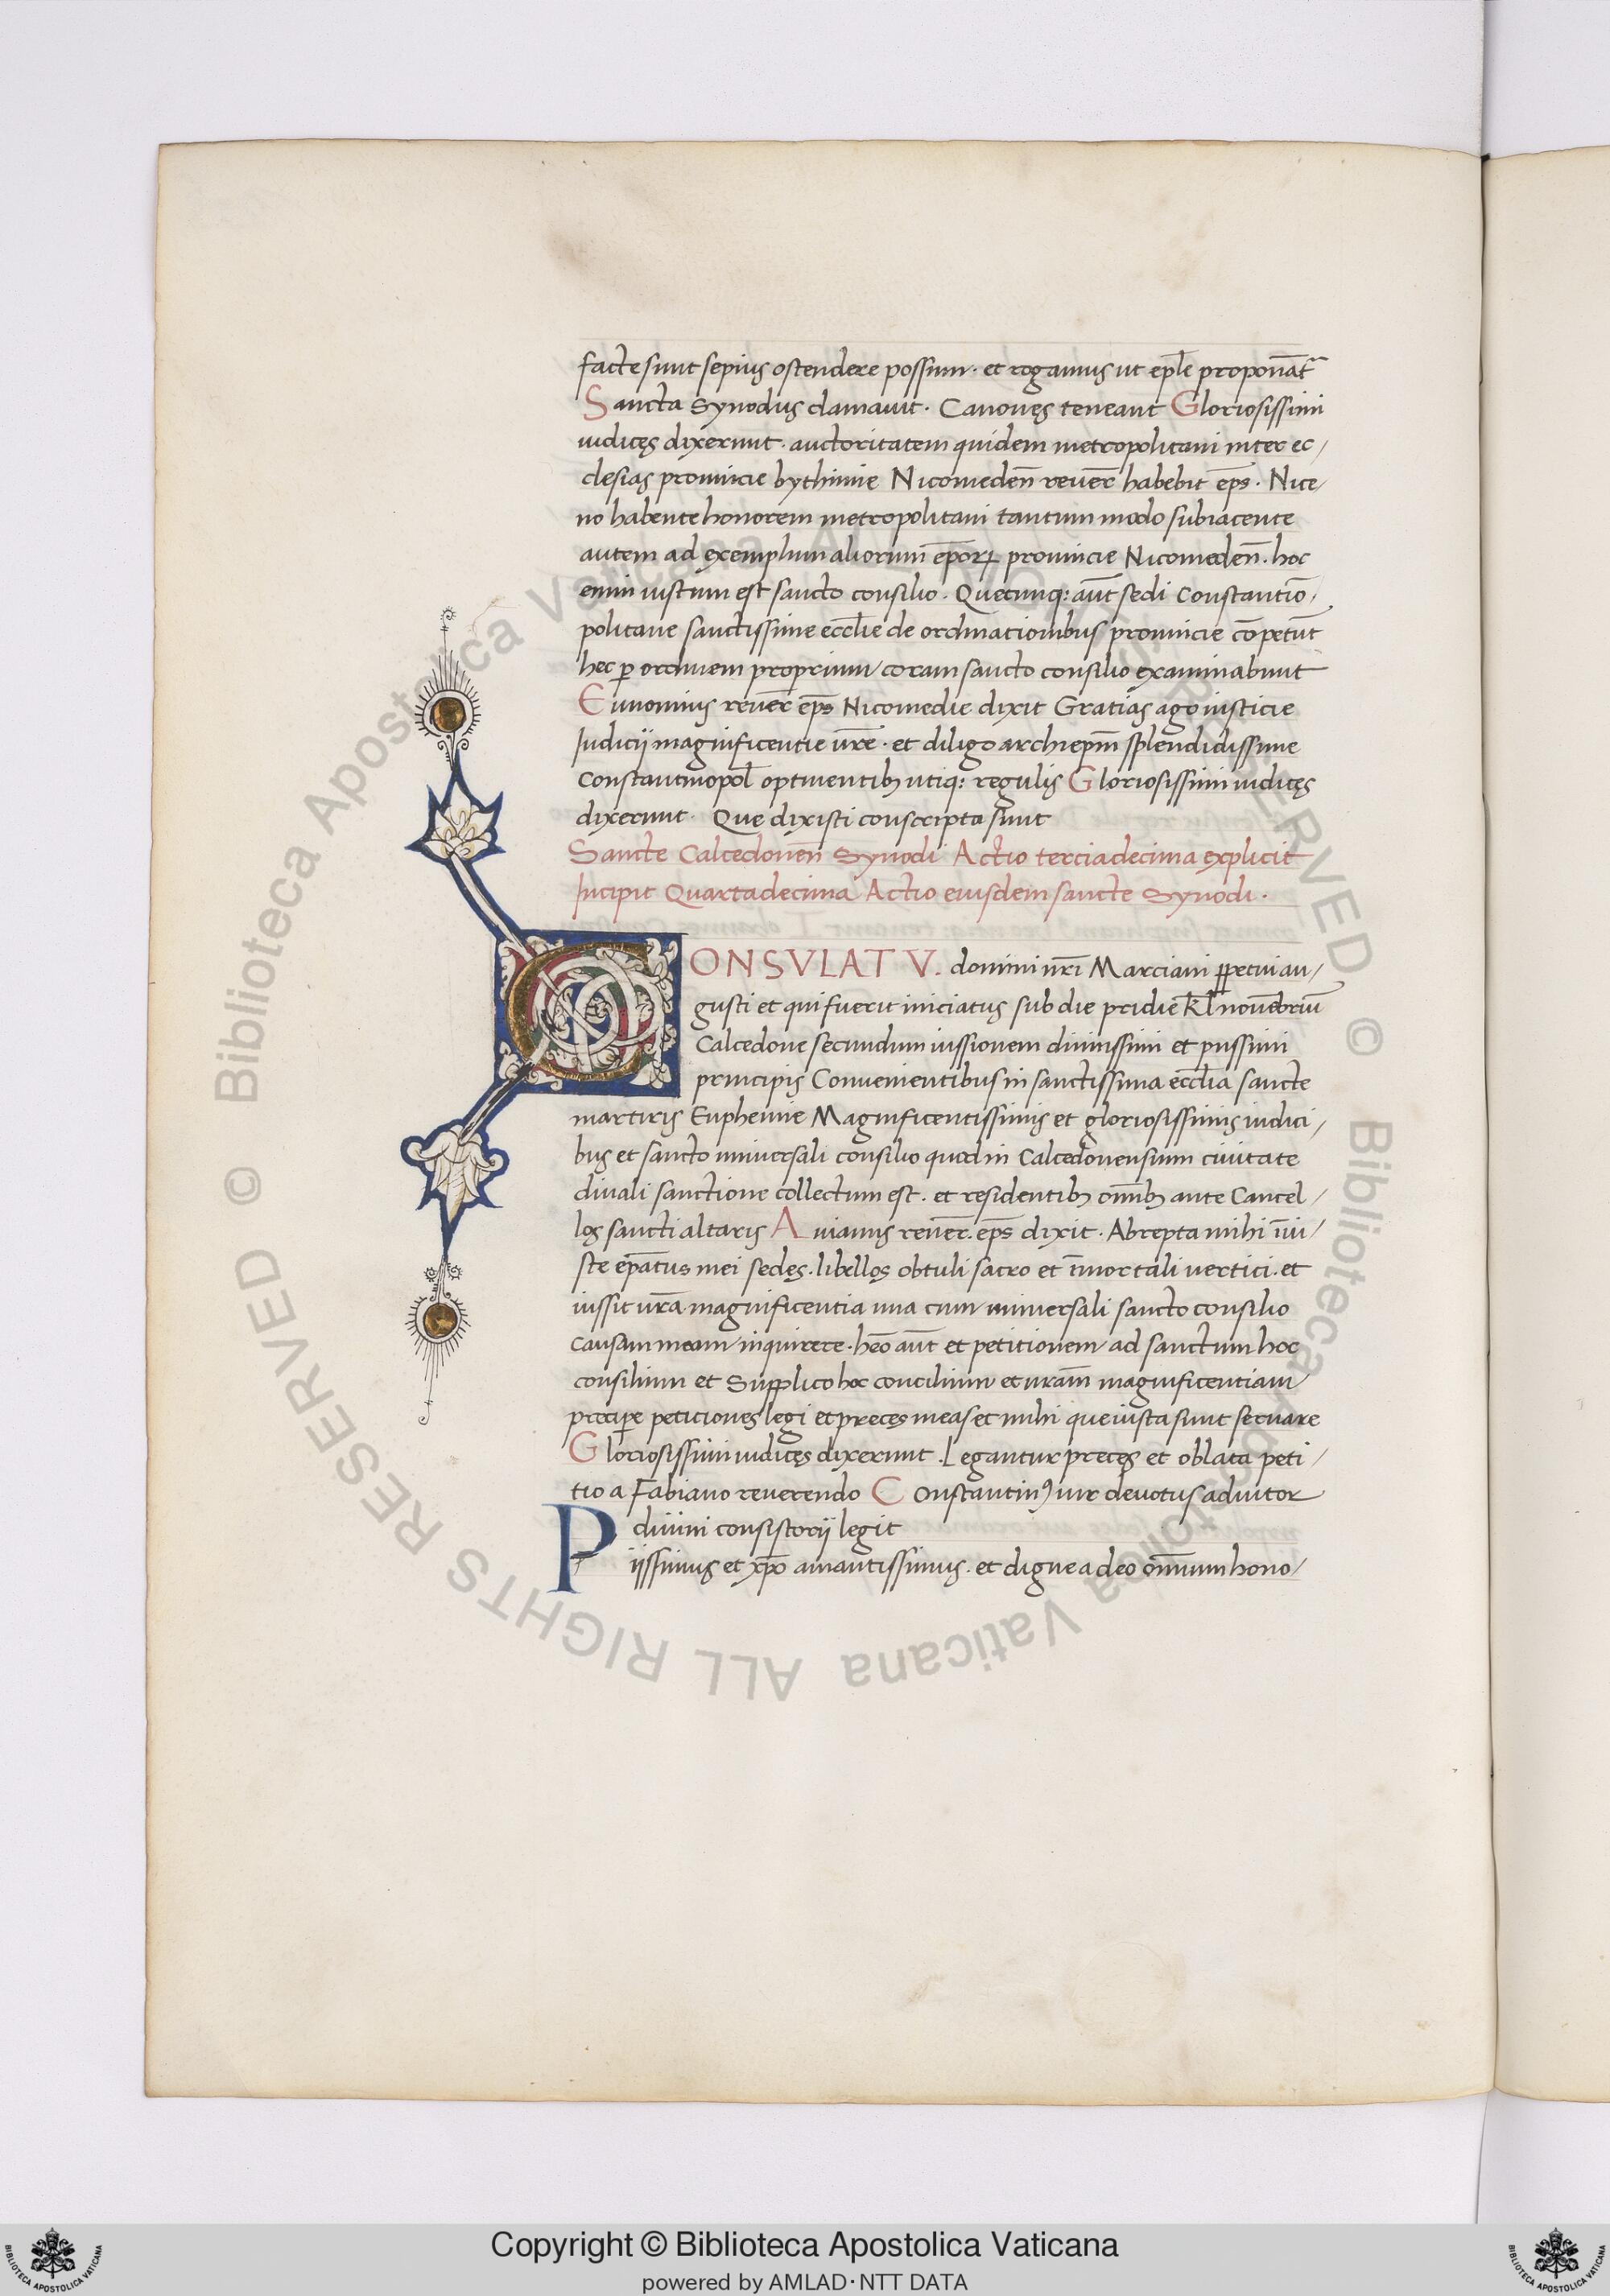 facte sunt sepius ostendere possum · et rogamus ut ep̄le proponāt᷑
Sancta Synodus clamauit · Canonęs teneant Gloriosissimi
iudicęs dixerunt · auctoritatem quidem metropolitani inter ec/
clesias prouincie bythinie Nicomedeñ reuer̄ habebit ep̄s · Nice/
no habente honorem metropolitani tantum modo subiacente
autem ad exemplum aliorum ep̄oꝝ prouincie Nicomedeñ · hoc
enim iustum est sancto consilio · Quecunq: aūt sedi Constantiō/
politane sanctissime eccl̄ie de ordinationibus prouincie cōpetūt
hec ꝑ ordinem proprium coram sancto consilio examinabunt
Eunomius reuer̄ ep̄s Nicomedie dixit Gratias ago iusticie
Iudicij magnificentie ur̄e · et diligo archiep̄m splendidissime
Constantinopol̄ optinentibꝫ utiq: regulis Gloriosissimi iudicęs
dixerunt · Que dixisti conscripta sunt
Sancte Calcedoneñ Synodi Actio terciadecima explicit
Incipit Quartadecima Actio eiusdem sancte Synodi ·
CONSVLATV. domini nr̄i Marciani ꝑpetui au/
gusti et qui fuerit iniciatus sub die pridie kl̄ nouēbriū
Calcedone secundum iussionem diuinissimi et piissimi
principis Conuenientibus in sanctissima eccl̄ia sancte
martiris Euphemie Magnificentissimis et gloriosissimis iudici/
bus et sancto uniuersali consilio quod in Calcedonensium ciuitate
diuali sanctione collectum est · et residentibꝫ om̄ibꝫ ante Cancel/
los sancti altaris Auianus reuer̄ · ep̄s dixit · Abrepta mihi iniu/
ste ep̄atus mei sedęs · libellos obtuli sacro et īmortali uertici · et
iussit ur̄a magnificentia una cum uniuersali sancto consilio
causam meam inquirere · hēo aūt et petitionem ad sanctum hoc
consilium et Supplico hoc concilium et ur̄am magnificentiam
precipe peticiones legi et precęs meas et mihi que iusta sunt seruare
Gloriosissimi iudicęs dixerunt · Legantur precęs et oblata peti/
tio a Fabiano reuerendo Constantinꝰ uir deuotus adiutor
diuini consistorij legit
Piissimus et xp̄o amantissimus · et digne a deo om̄ium hono/
© Biblioteca Apostolica Vaticana ALL RIGHTS RESERVED © Biblioteca Apostolica Vaticana ALL RIGHTS RESERVED
Copyright © Biblioteca Apostolica Vaticana
powered by AMLAD·NTT DATA
BIBLIOTECA APOSTOLICA VATICANA
BIBLIOTECA APOSTOLICA VATICANA